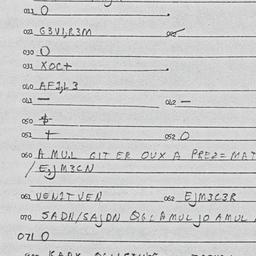 011 O
021 G3V1,R3M
030 O
031 XOC+
040 AF1,L3
041 — 042 —
050 +
051 + 052 O
060 A MUL GIT ER OUX A PREZ= MAT
/ EJM3CN
061 VENITVEN 062 EJM3C3R
070 SADN/SAJDN AMUL JO AMUL
071 O